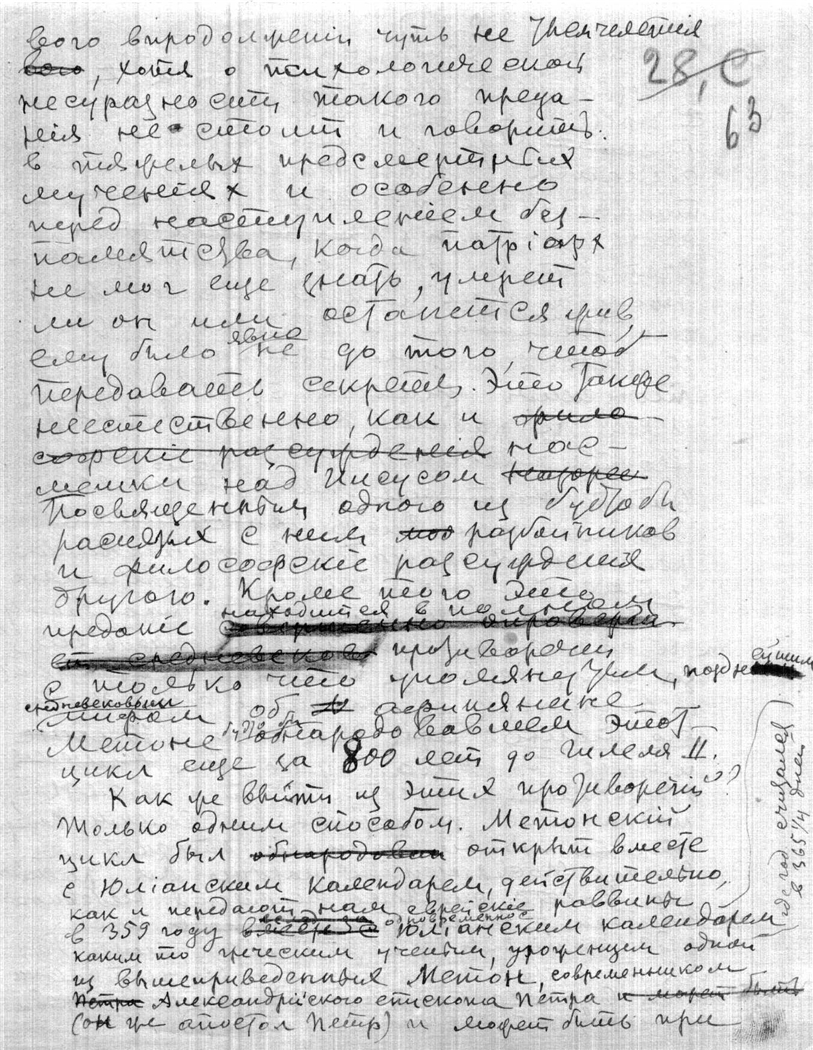 вого впродолженіи чуть не тысячелетія
~~вого~~, хотя о психологической
несуразности такого преда-
нія не стоит и говорить.
в тяжелых предсмертных
мученіях и особенно
перед наступленіем без-
памятства, когда патріарх
не мог еще знать, умрет
ли он или останется жив,
ему было явно не до того, чтоб
передавать секреты. Это также
неестественно, как и ~~фило-~~
~~софскіе разсужденія~~ нас-
мешки над Иисусом
Посвященным одного из будто бы
распятых с ним разбойников
и философскіе разсужденія
другого. Кроме того это
преданіе находится в полном
противоречіи
с только что упомянутым, позднейшим
средневековым
мифом об афинянине
Метоне будто бы обнародовавшем этот
цикл еще за 800 лет до Гилеля II.
Как же выйти из этих противоречій??
Только одним способом. Метонскій
цикл был ~~обнародован~~ открыт вместе
с Юліанским календарем, действительно,
как и передают нам еврейскіе раввины
в 359 году одновременно с Юліанским календарем
каким то греческим ученым, уроженцем одной
из вышеприведенных Метон, современником
~~Петра~~ Александрійского епископа Петра ~~и может быть~~
(он же апостол Петр) и может быть при
28, С
63
где год считался
в 365 1/4 дней